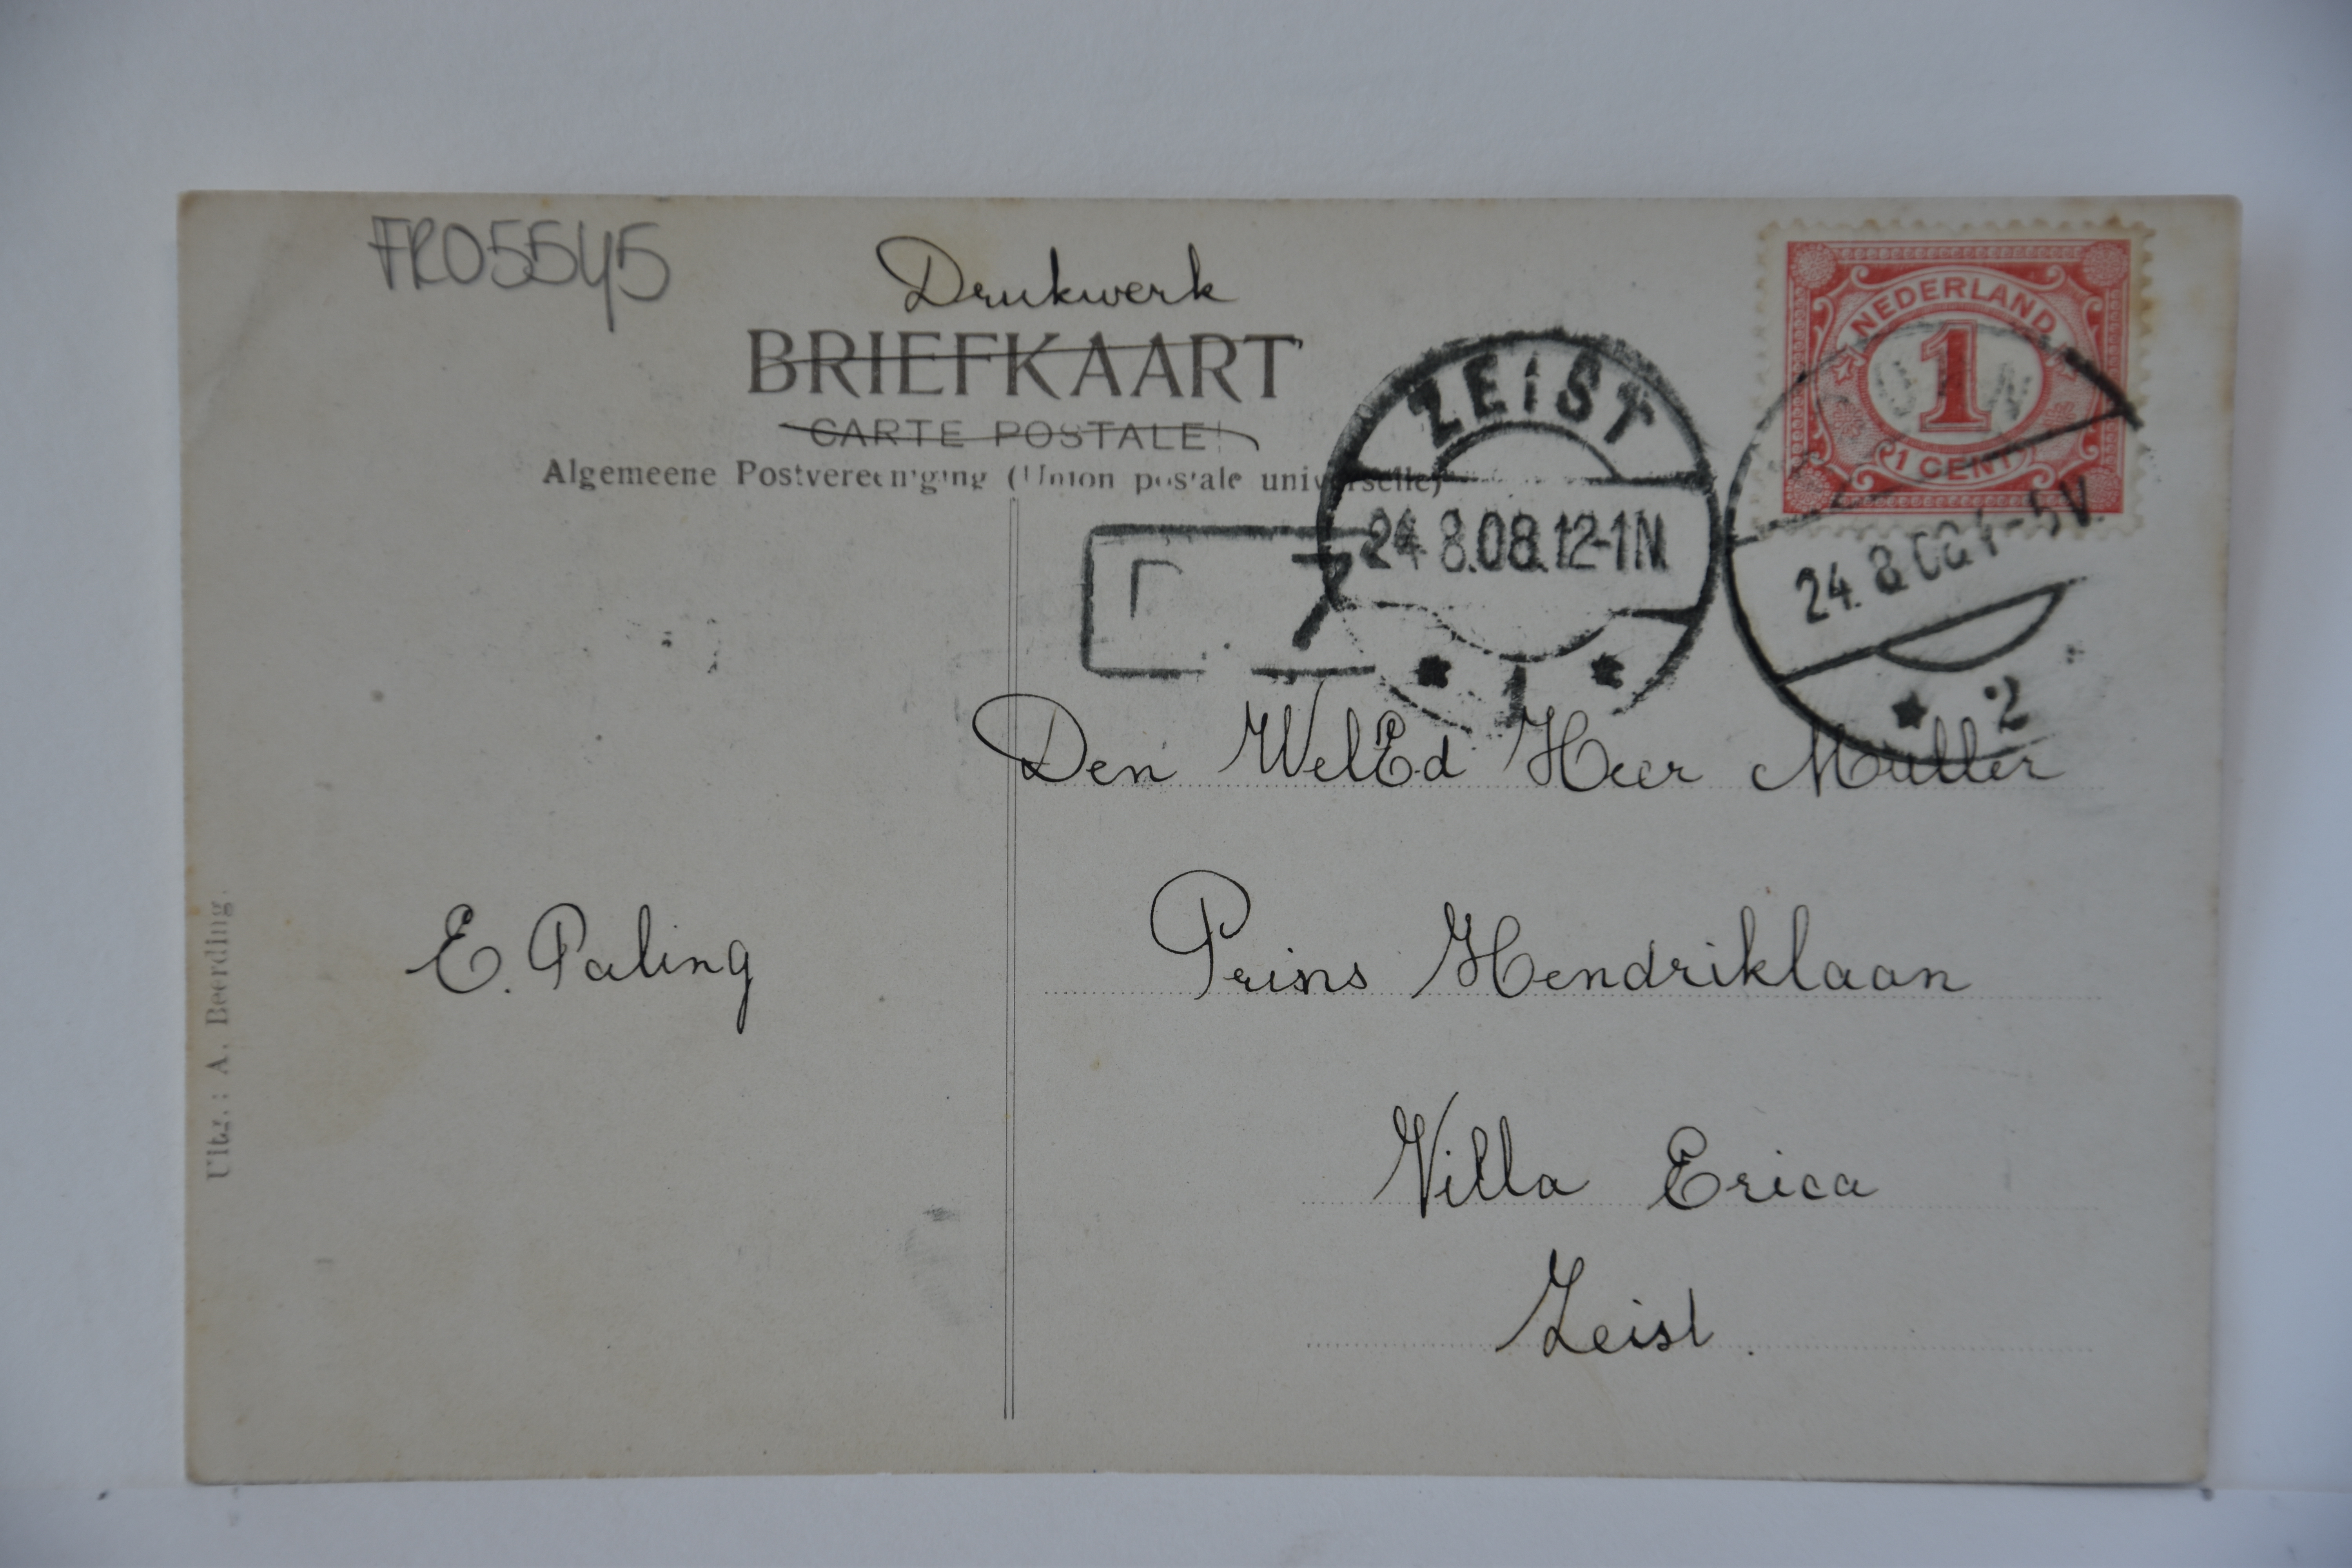 FR05545
Drukwerk
BRIEFKAART
CARTE POSTALE
Algemeene Postvereeniging (Union postale universelle)
NEDERLAND
1
1 CENT
ZEIST
24.8.08.12-1N
1
24.8.08 4-5V
2
Den WelEd Heer Muller
E. Paling
Prins Hendriklaan
Villa Erica
Zeist.
Uitg.: A. Beerding.